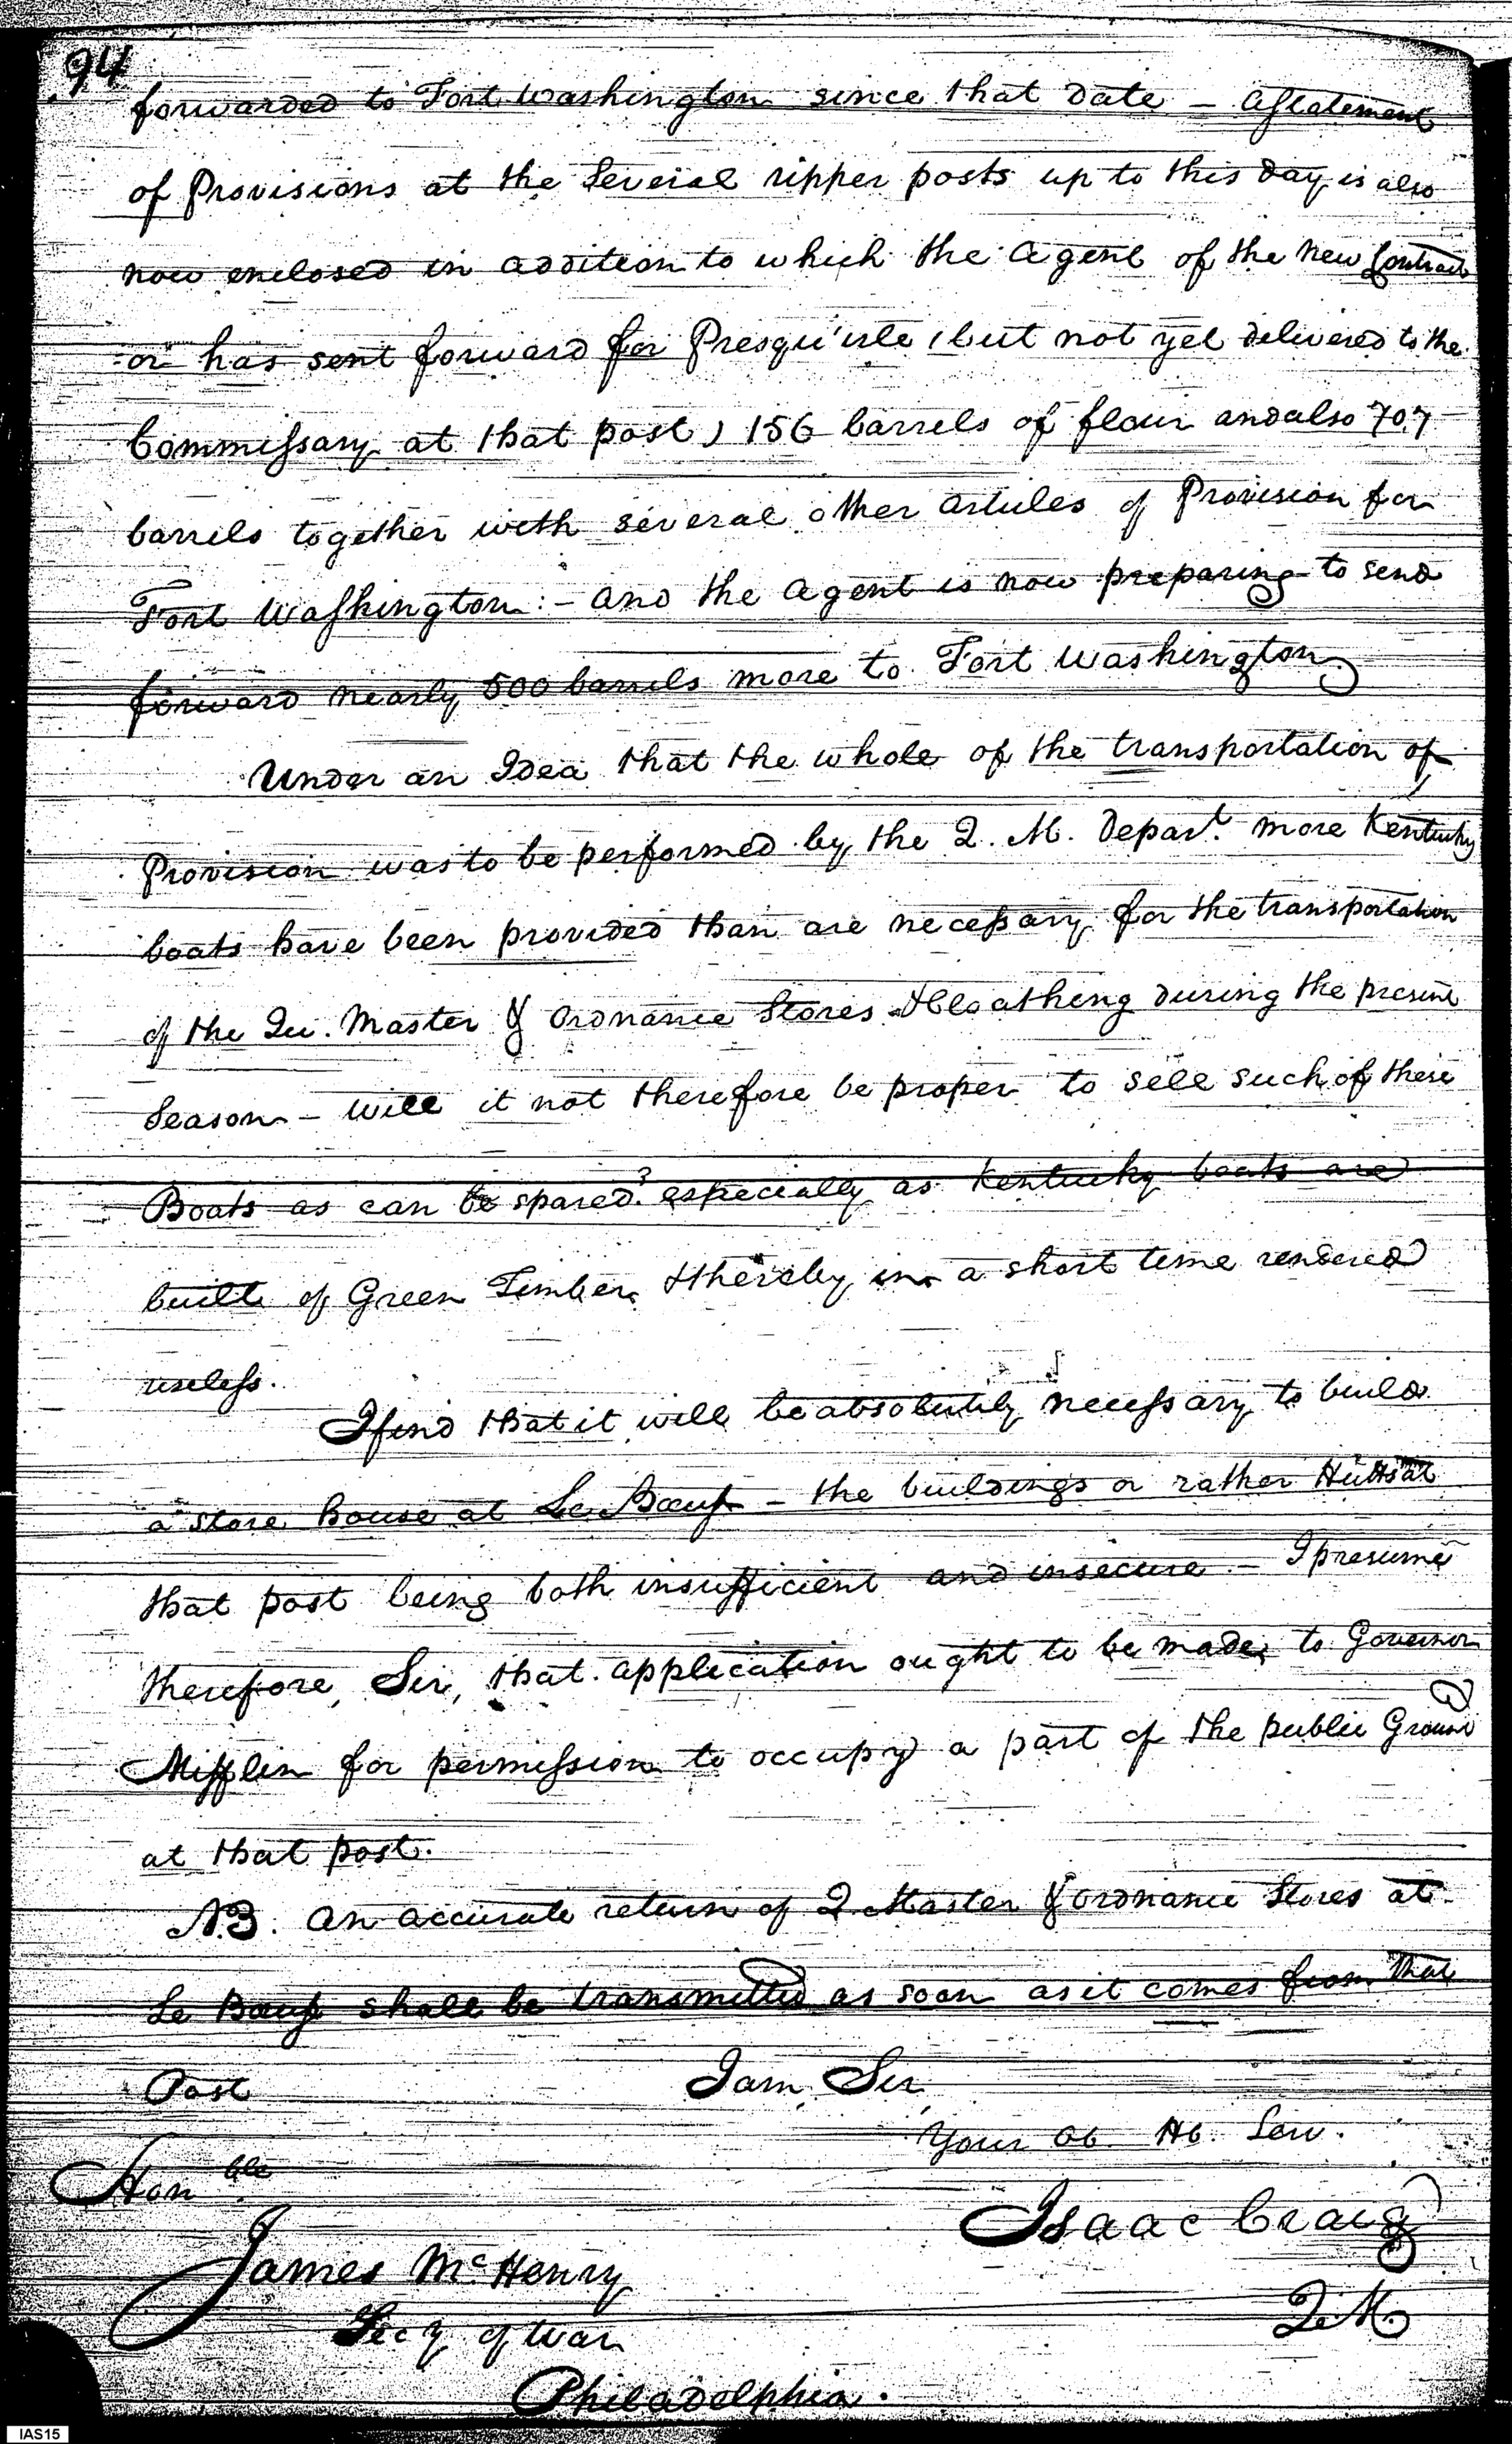 94
forwarded to Fort Washington since that date – a Statement
of Provisions at the Several upper posts up to this day is also
now enclosed in addition to which the agent of the new Contract
-or has sent forward for Presqu'isle (but not yet delivered to the
Commissary at that post) 156 barrels of flour and also 707
barrels together with several other articles of Provision for
Fort Washington :- and the agent is now preparing to send
forward nearly 500 barrels more to Fort Washington
Under an Idea that the whole of the transportation of
Provision was to be performed by the Q. M. Depart. more Kentucky
boats have been provided than are necessary for the transportation
of the Qu. Master & Ordnance Stores & Cloathing during the present
Season – will it not therefore be proper to sell such of these
Boats as can be spared? especially as Kentucky boats are
built of Green Timber & thereby in a short time rendered
useless.
I find that it will be absolutely necessary to build
a store house at Le Bœuf – the buildings or rather Hutts at
that post being both insufficient and insecure – I presume
therefore, Sir, that application ought to be made to Governor
Mifflin for permission to occupy a part of the public Ground
at that post.
N.B. an accurate return of Q. Master & Ordnance Stores at
Le Bœuf shall be transmitted as soon as it comes from that
Post
I am Sir
Your Ob. Hb. Serv.
Isaac Craig
Q.M
Honble
James McHenry
Secy of War
Philadelphia.
IAS15